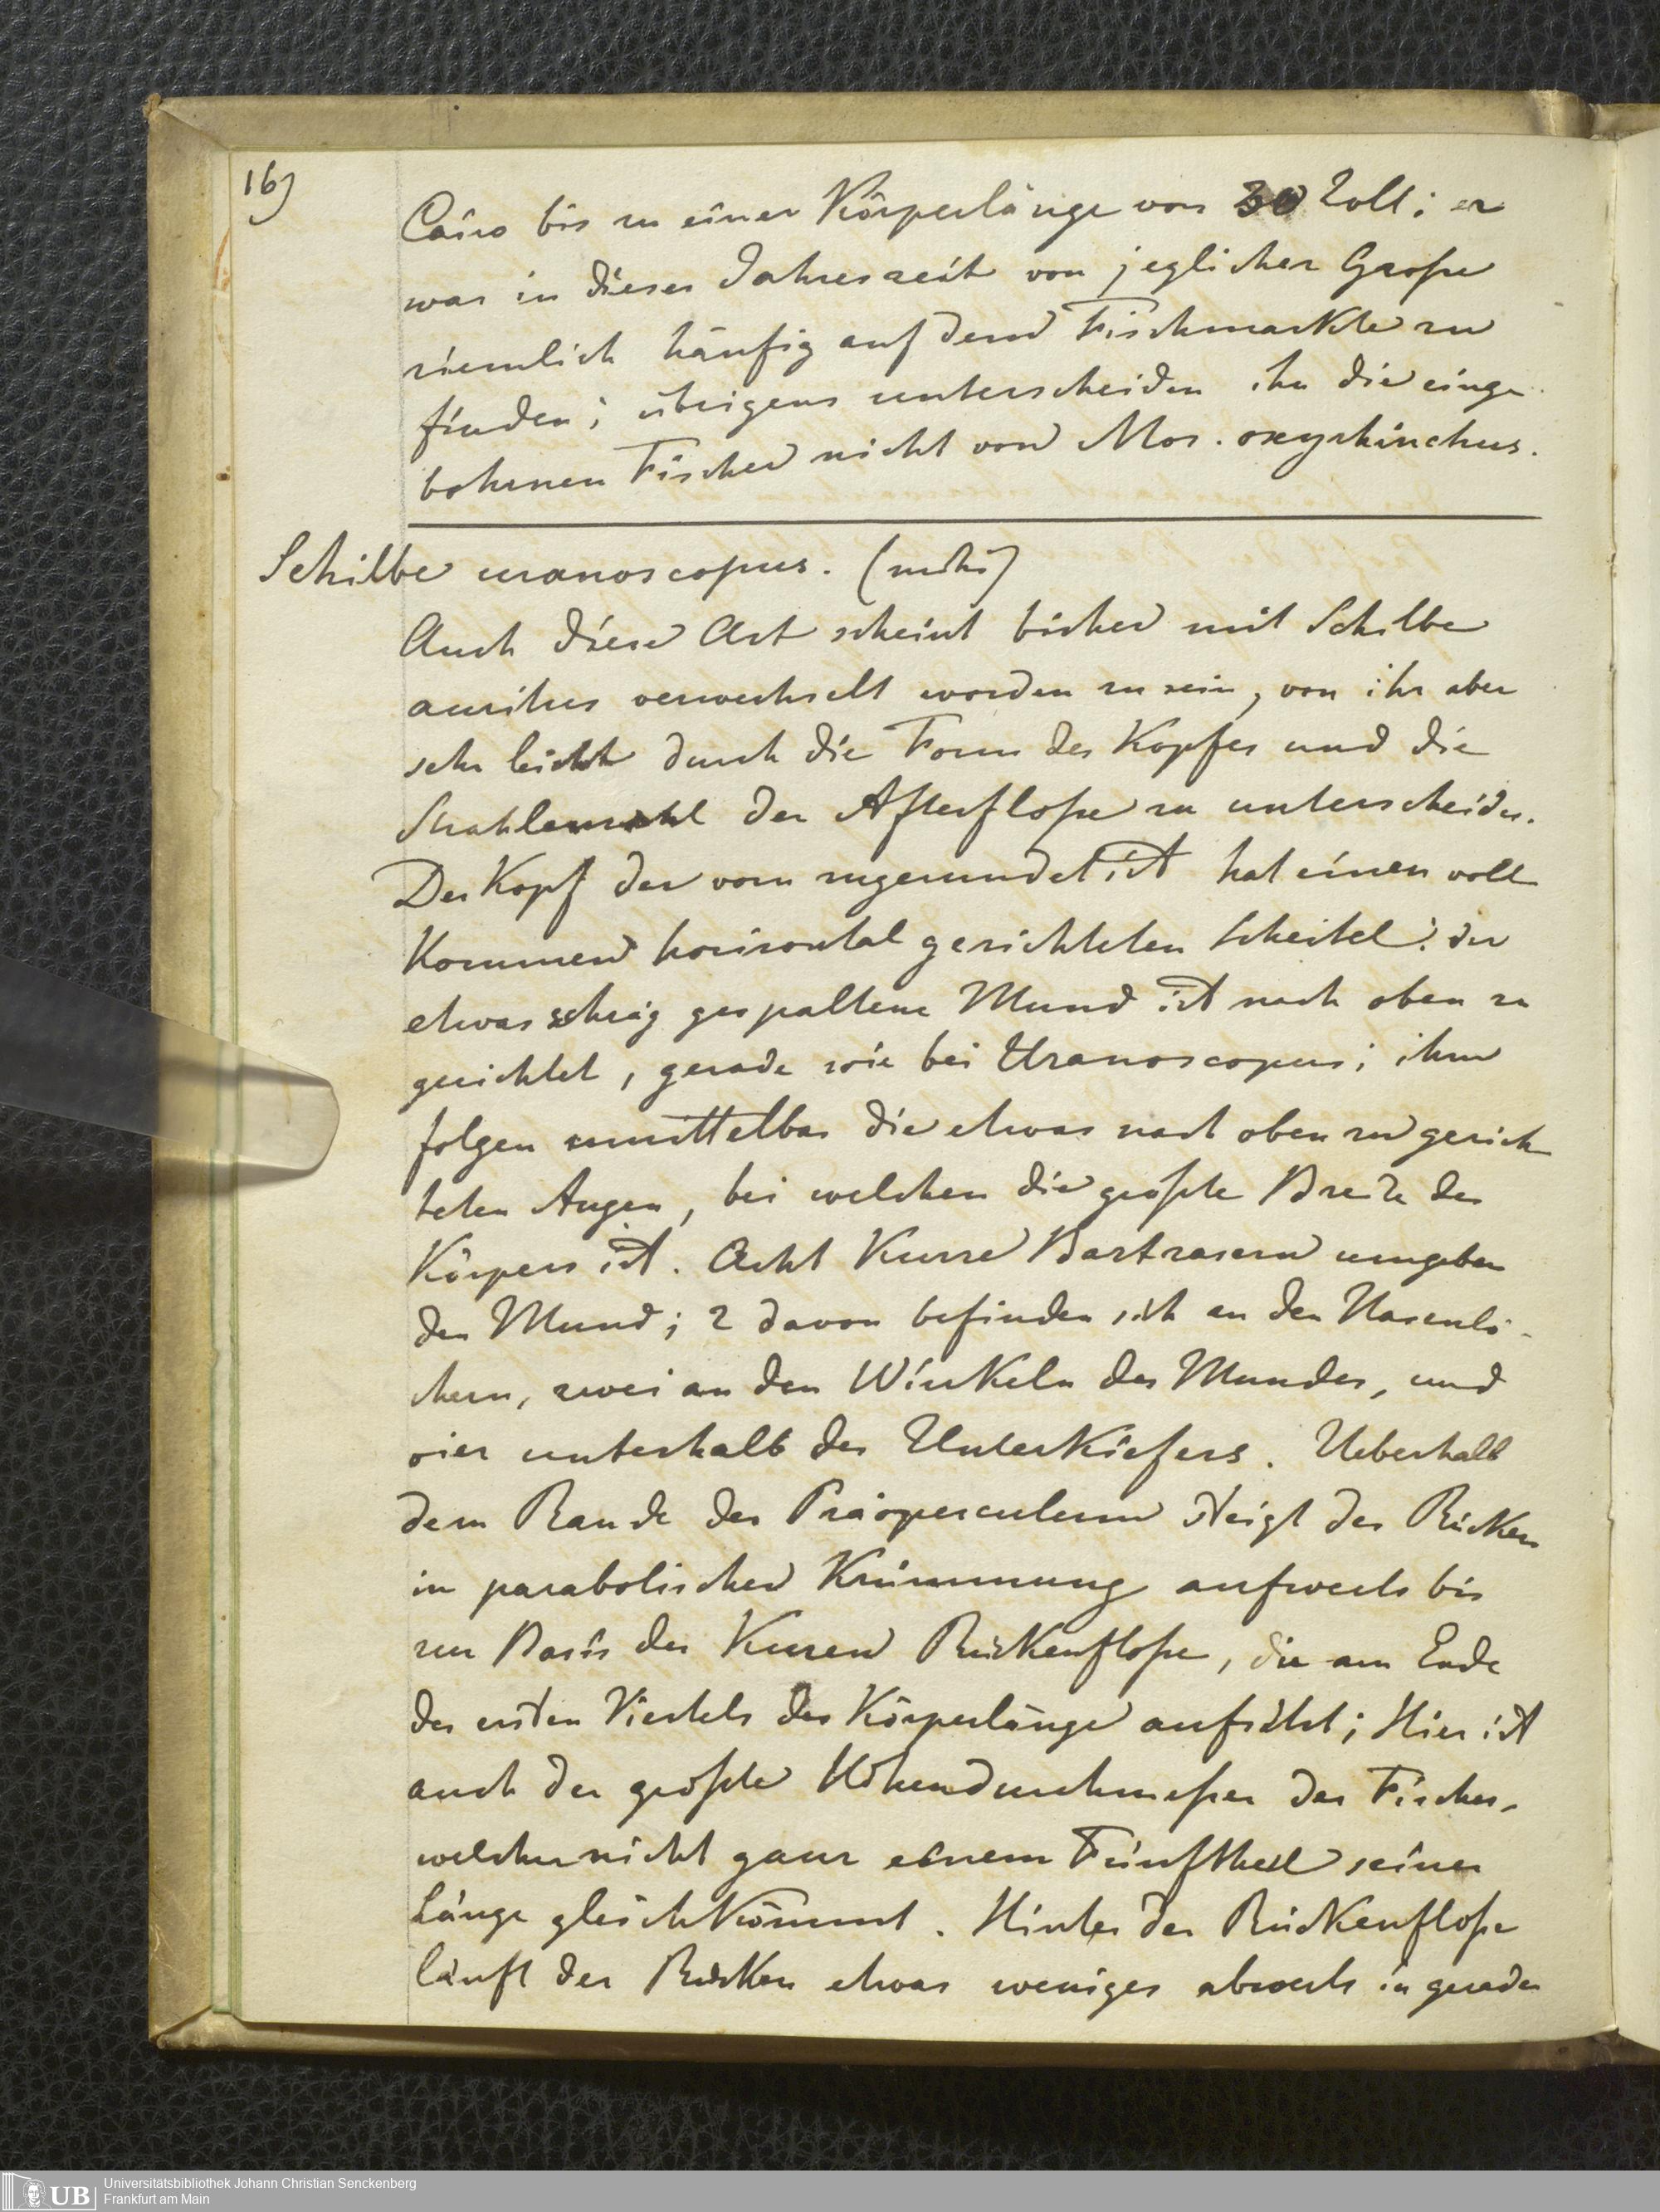 16)
Cairo bis zu einer Körperlänge von 30 Zoll; er
war in dieser Jahreszeit von jeglicher Größe
ziemlich häufig auf dem Fischmarkte zu
finden; übrigens unterscheiden ihn die einge
bohrnen Fischer nicht von Mor. oxyrhinchus.
Schilbe uranoscopus. (mihi)
Auch diese Art scheint bisher mit Schilbe
auritus verwechselt worden zu sein, von ihr aber
sehr leicht durch die Form des Kopfes und die
Strahlenzahl der Afterfloße zu unterscheiden.
Der Kopf der vorn zugerundet ist hat einen voll
kommen horizontal gerichteten Scheitel: der
etwas schräg gespaltene Mund ist nach oben zu
gerichtet, gerade wie bei Uranoscopus; ihm
folgen unmittelbar die etwas nach oben zu gerich
teten Augen, bei welchen die größte Breite des
Körpers ist. Acht kurze Bartfasern umgeben
den Mund; 2 davon befinden sich an den Nasenlö-
chern, zwei an den Winkeln des Mundes, und
vier unterhalb des Unterkiefers. Ueberhalb
dem Rande des Präoperculum steigt der Rücken
in parabolischer Krümmung aufwerts bis
zur Basis der kurzen Rückenfloße, die am Ende
des ersten Viertels der Körperlänge aufsitzt; Hier ist
auch der größte Höhendurchmeßer des Fisches,
welcher nicht ganz einem Fünftheil seiner
Länge gleichkömmt. Hinter der Rückenfloße
läuft der Rücken etwas weniges abwerts in gerader
UB
Universitätsbibliothek Johann Christian Senckenberg
Frankfurt am Main